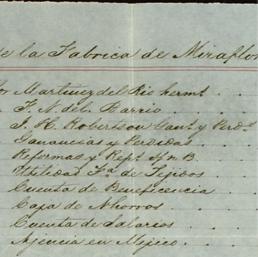 de la Fabrica de Miraflor
por Martinez del Rio herms
" F. N. del Barrio
" J. H. Robertson Gans y Perds
" Ganancias y Perdidas
" Reformas y Reps
" Utilidad Fa de Tejidos
" Cuenta de Beneficencia
" Caja de Ahorros
" Cuenta de Salarios
" Agencia en Mejico